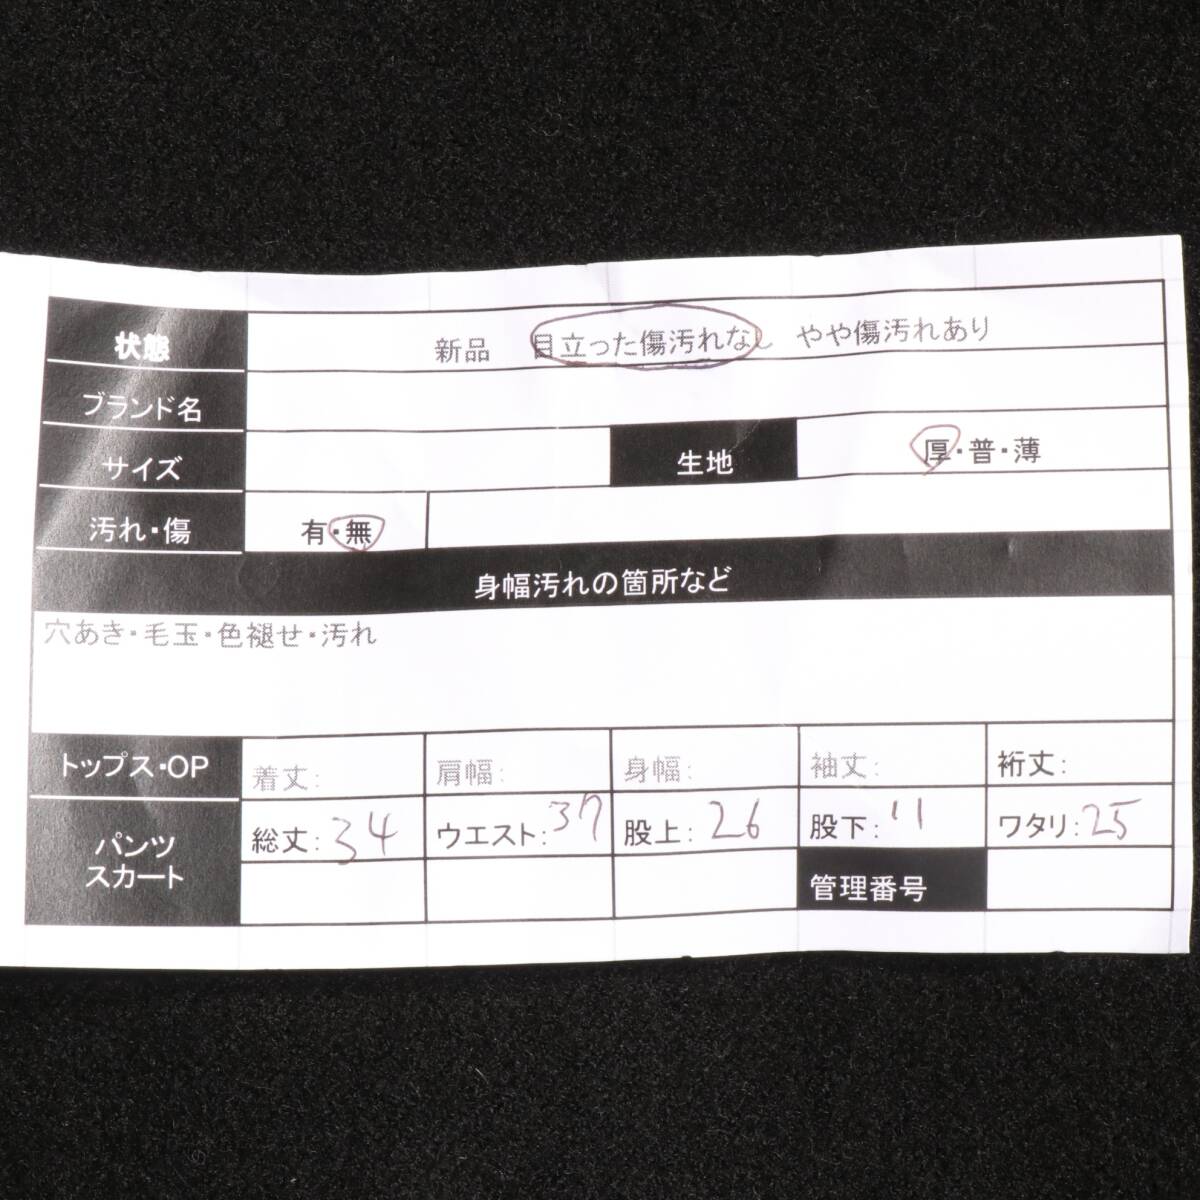 状態 新品 目立った傷汚れなし やや傷汚れあり
ブランド名
サイズ 生地 厚・普・薄
汚れ・傷 有・無
身幅汚れの箇所など
穴あき・毛玉・色褪せ・汚れ
トップス・OP 着丈: 肩幅: 身幅: 袖丈: 裄丈:
パンツ スカート
総丈: 34 ウエスト: 37 股上: 26 股下: 11 ワタリ: 25
管理番号